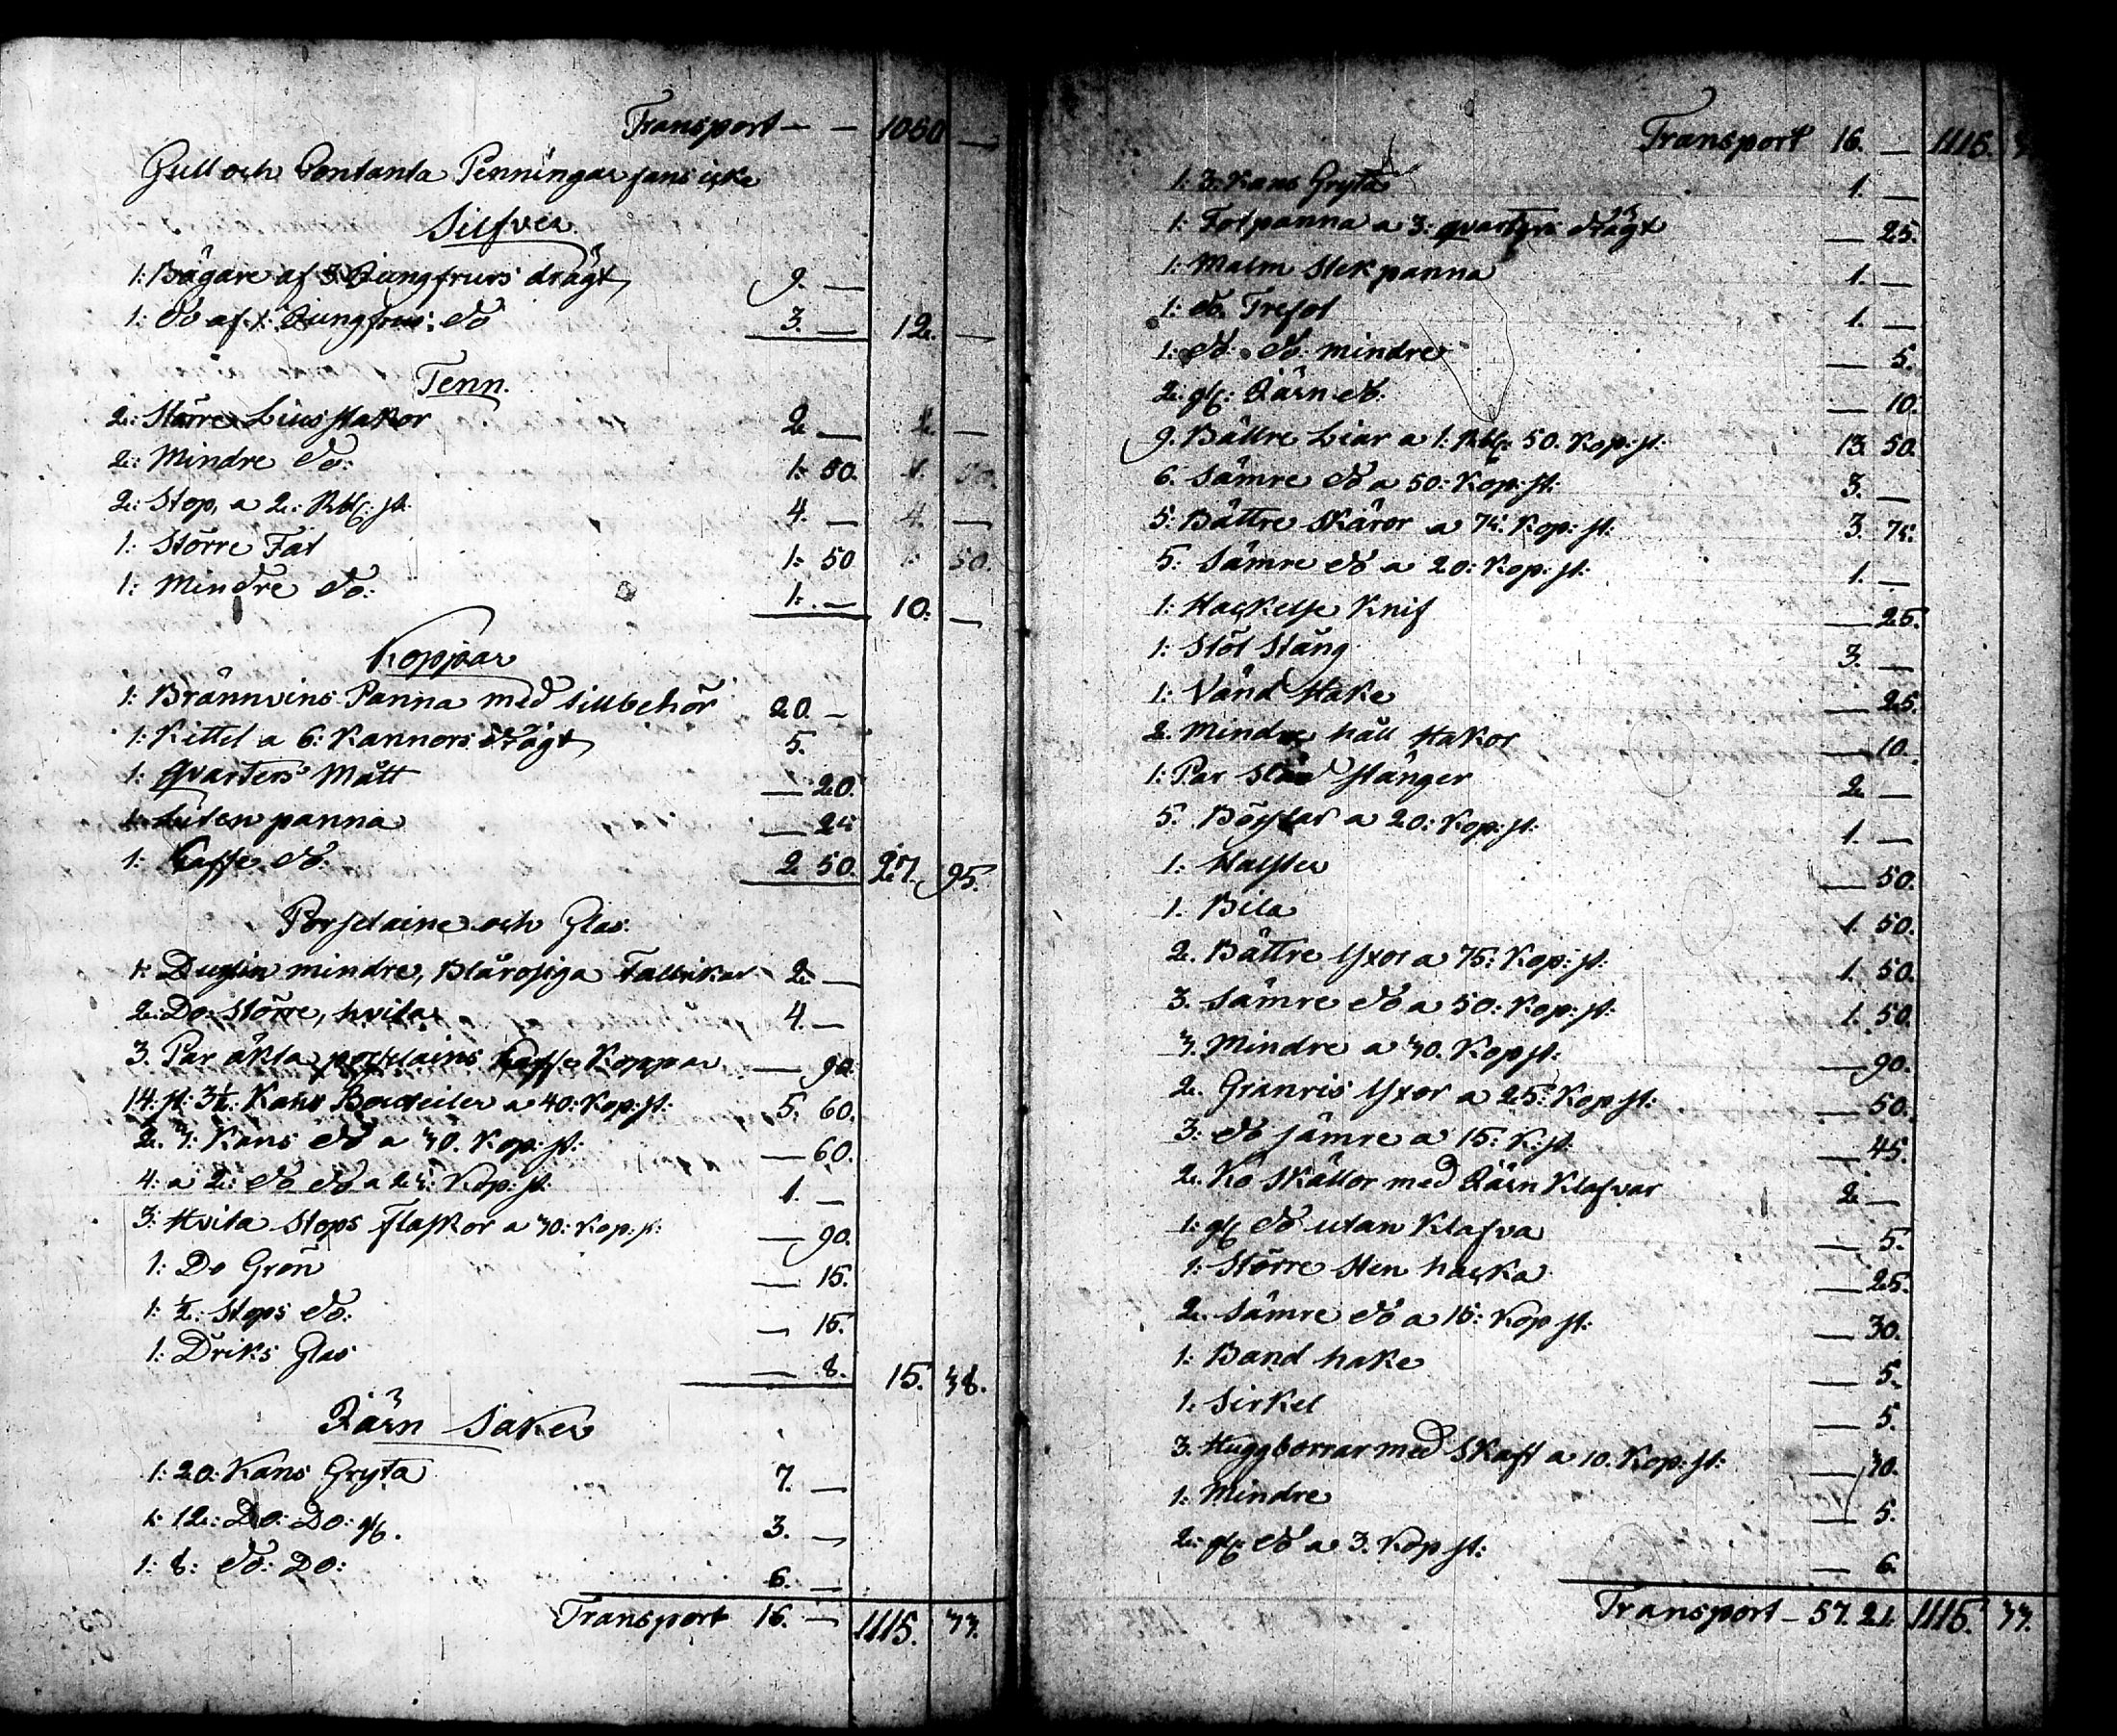 Transport — — 1050 —
Gull och Contanta Penningar fans icke
Silfver.
1: Bägare af 3 Jungfrurs drägt 9. —
1: do af 1: Jungfrus: do 3. — 12. —
Tenn.
2: Större Liusstakor 2 — 2. —
2: Mindre do: 1: 50. 1. 50.
2: Stop, a 2: Rbl: st: 4. — 4. —
1: Större Fat 1: 50 1: 50.
1: Mindre do: 1: — 10: —
Koppar
1: Brännvins Panna med tillbehör 20. —
1: Kittel a 6: Kannors drägt 5.
1: qvarters Mått — 20.
1: Liten panna — 25:
1: Kaffe do: 2 50. 27. 95.
Porslaine och Glas.
1: Dusin mindre, Blårosiga Tallrikar 2. —
2. Do: Större, hvita 4. —
3. Par äkta porslains Kaffe Koppar — 90.
14: st: 3½: Kans Bouteiler a 40: Kop: st: 5. 60.
2. 3: Kans do a 30. Kop: st: — 60.
4: a 2: do do a 25: Kop: st: 1. —
3: Hvita Stops Flaskor a 30: Kop: st: — 90.
1: Do Grön — 15.
1: ½: Stops do: — 15.
1: Driks Glas — 8. 15. 38.
Järn Saker
1: 20: Kans Gryta 7. —
1: 12: Do: Do: gl. 3. —
1: 8: do: Do: 6. —
Transport 16. — 1115. 33.
Transport 16. — 1115. 3
1: 3: Kans Gryta 1. —
1: Fotpanna a 3: qvarters drägt — 25.
1: Malm Stekpanna 1. —
1: do. Trefot 1. —
1: do: do: mindre — 5.
2: gl: Järn do: — 10.
9. Bättre Liar a 1: Rbl: 50. Kop: st: 13. 50.
6. Sämre do a 50: Kop: st: 3. —
5: Bättre Skäror a 75: Kop: st: 3. 75:
5: Sämre do a 20: Kop: st: 1. —
1: Hackelse Knif — 25.
1: Stöt Stång 3. —
1: Vänd Hake — 25.
2. Mindre håll Hakor — 10.
1: Par stänger 2 —
5. a 20: Kop: st: 1. —
1. Halster — 50.
1. Bila 1. 50.
2. Bättre Yxor a 75: Kop: st: 1. 50.
3. Sämre do a 50: Kop: st: 1. 50.
3. Mindre a 30. Kop st: — 90.
2. Granris Yxor a 25: Kop st: — 50.
3: do sämre a 15: K: st: — 45.
2. Ko Skällor med Järn Klafvar 2 —
1: gl do utan Klafva — 5.
1: Större Sten hacka — 25.
2. Sämre do a 15: Kop st: — 30.
1: Band hake — 5.
1. Sirkel — 5.
3. Huggborrar med Skaft a 10. Kop: st: — 30.
1: Mindre — 5.
2: gl: do a 3. Kop st: — 6.
Transport — 57. 21 1115. 33.